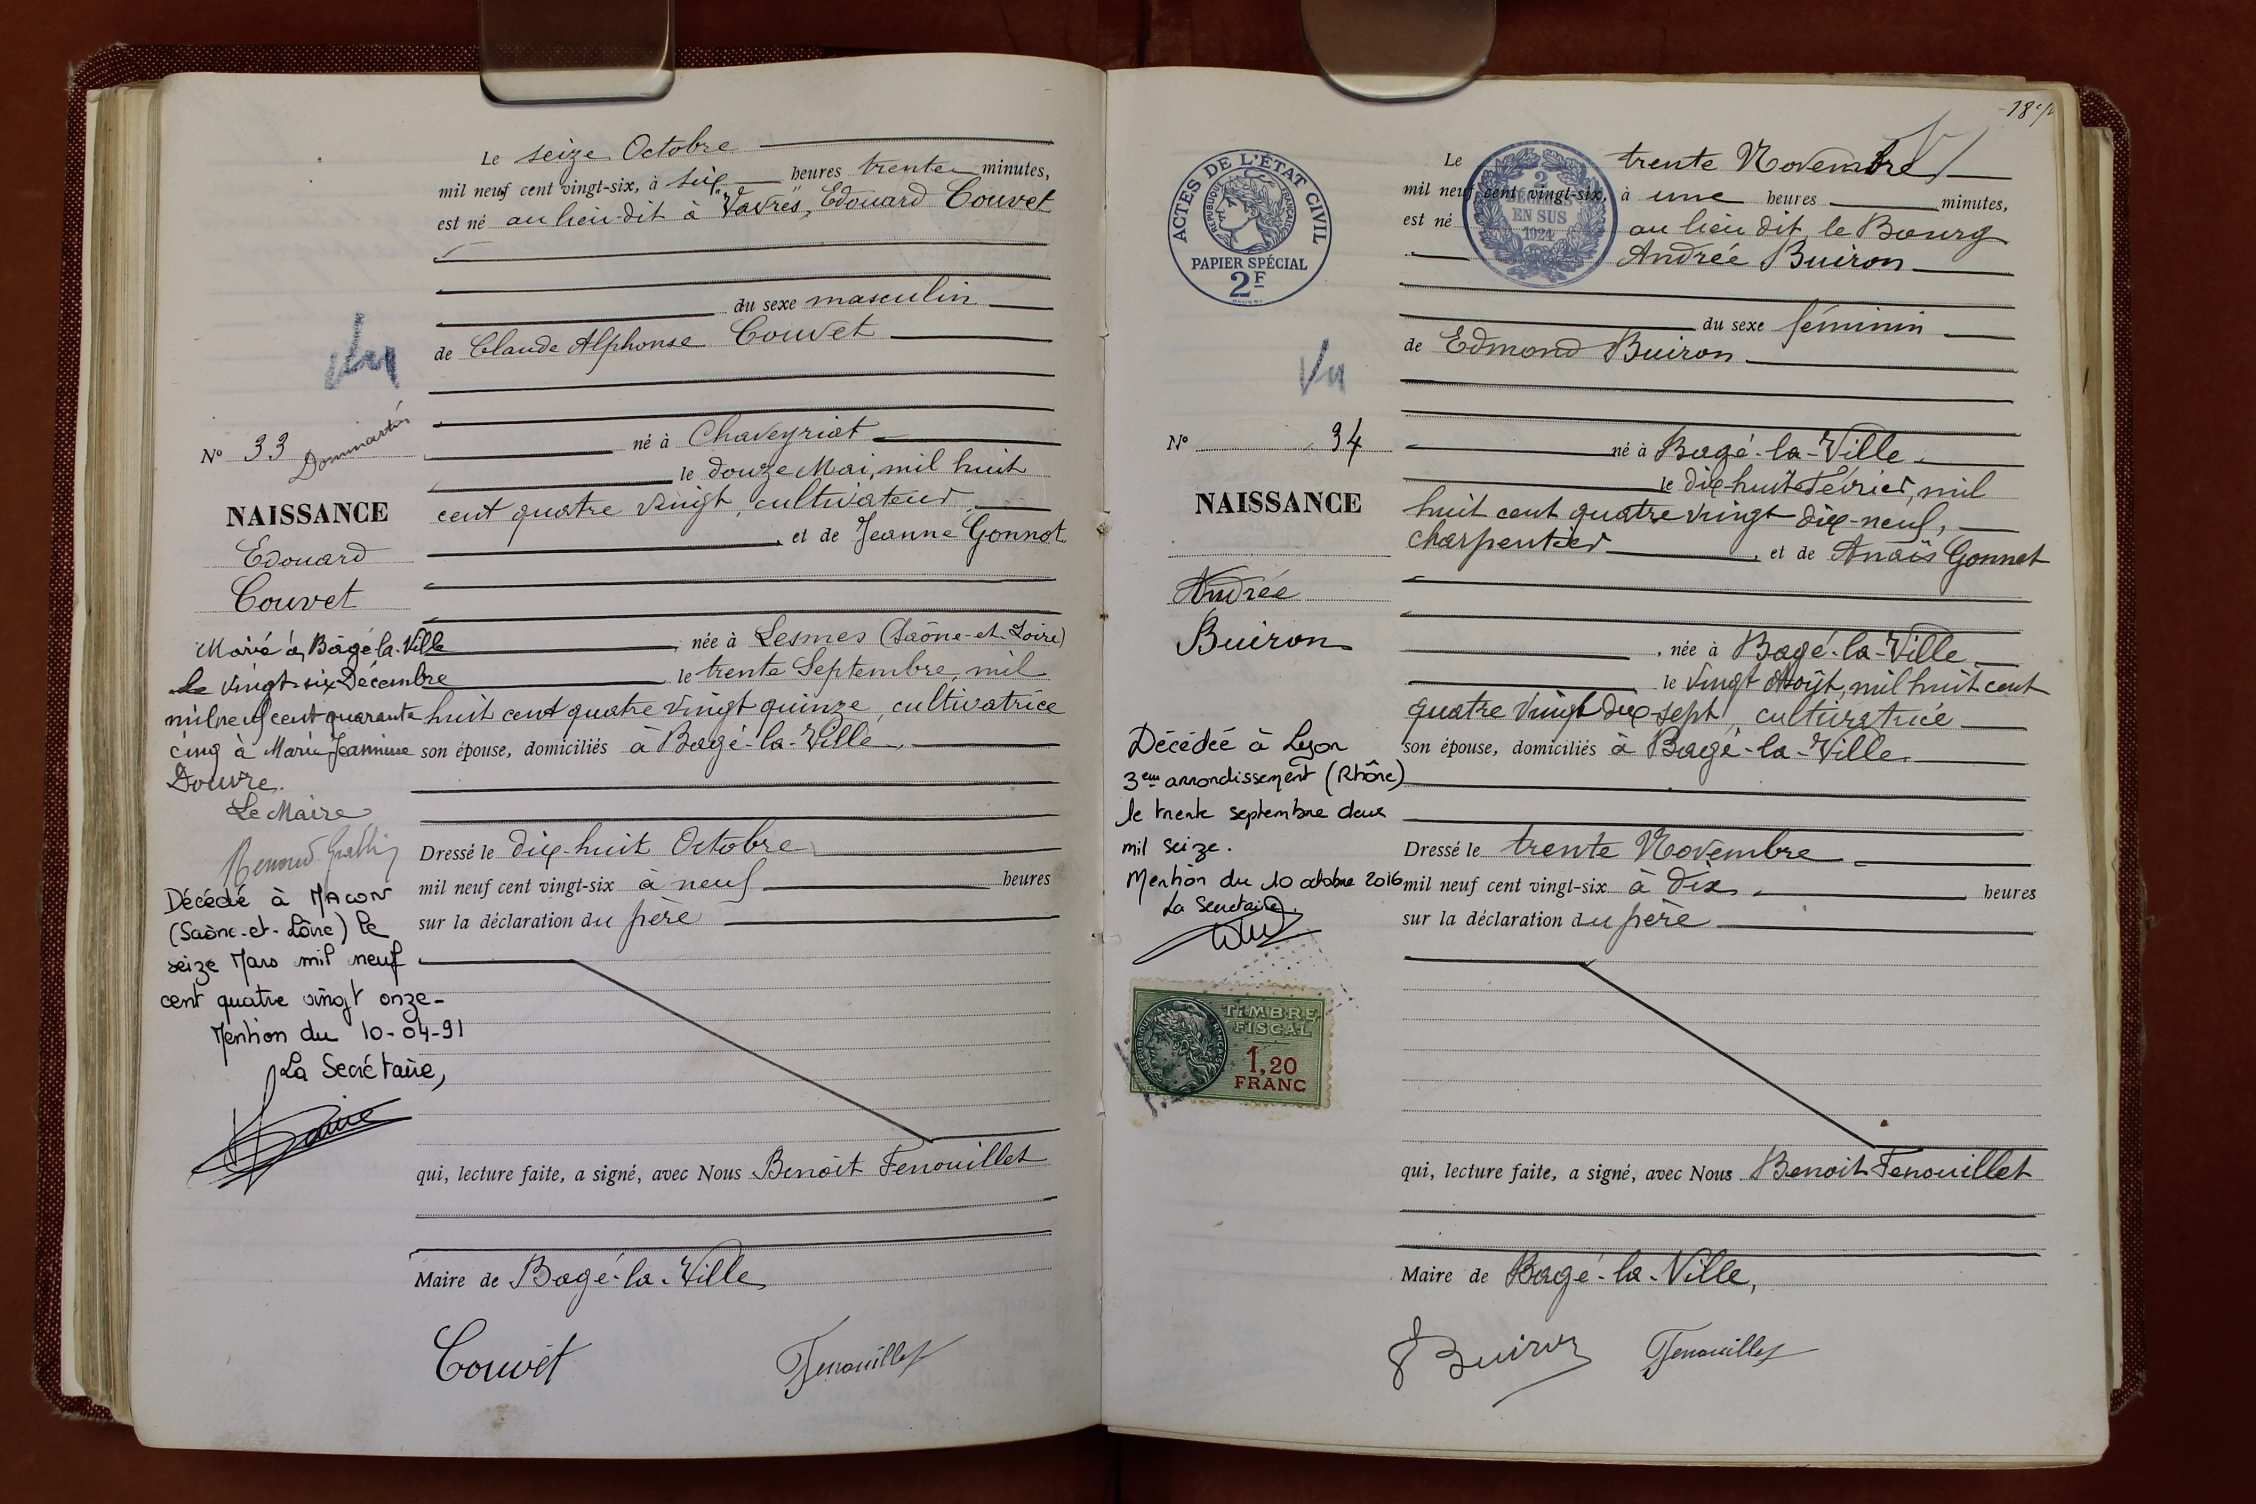 Le seize Octobre
mil neuf cent vingt-six, à six heures trente minutes,
est né au lieu-dit à "Vavres", Edouard Couvet
du sexe masculin
de Claude Alphonse Couvet
né à Chaveyriat
le douze Mai, mil huit
cent quatre vingt, cultivateur
, et de Jeanne Gonnot
, née à Lesmes (Saône-et-Loire)
le trente Septembre, mil
huit cent quatre vingt quinze, cultivatrice
son épouse, domiciliés à Bagé-la-Ville,
Dressé le dix-huit Octobre
mil neuf cent vingt-six à neuf heures
sur la déclaration du père
qui, lecture faite, a signé, avec Nous Benoît Fenouillet
Maire de Bagé-la-Ville,
Couvet Fenouillet
Vu
N° 33 Dommartin
NAISSANCE
Edouard
Couvet
Marié à Bagé-la-Ville
le vingt-six Décembre
mil neuf cent quarante
cinq à Marie Jeannine
Douvre.
Le Maire
Décédé à MACON
(Saône-et-Loire) le
seize Mars mil neuf
cent quatre vingt onze-
Mention du 10-04-91
La Secrétaire,
ACTES DE L'ÉTAT CIVIL
RÉPUBLIQUE FRANÇAISE
PAPIER SPÉCIAL
2F
2
DÉCIMES
EN SUS
1924
Le trente Novembre
mil neuf cent vingt-six, à une heures minutes,
est né au lieu dit le Bourg
Andrée Buiron
du sexe féminin
de Edmond Buiron
né à Bagé-la-Ville
le dix-huit Février, mil
huit cent quatre vingt dix-neuf,
charpentier , et de Anaïs Gonnet
, née à Bagé-la-Ville
le vingt Août, mil huit cent
quatre vingt dix-sept, cultivatrice
son épouse, domiciliés à Bagé-la-Ville.
Dressé le trente Novembre
mil neuf cent vingt-six à dix heures
sur la déclaration du père
qui, lecture faite, a signé, avec Nous Benoit Fenouillet
Maire de Bagé-la-Ville,
Buiron Fenouillet
Vu
N° 34
NAISSANCE
Andrée
Buiron
Décédée à Lyon
3ème arrondissement (Rhône)
le trente septembre deux
mil seize.
Mention du 10 octobre 2016
La Secrétaire.
TIMBRE
FISCAL
1,20
FRANC